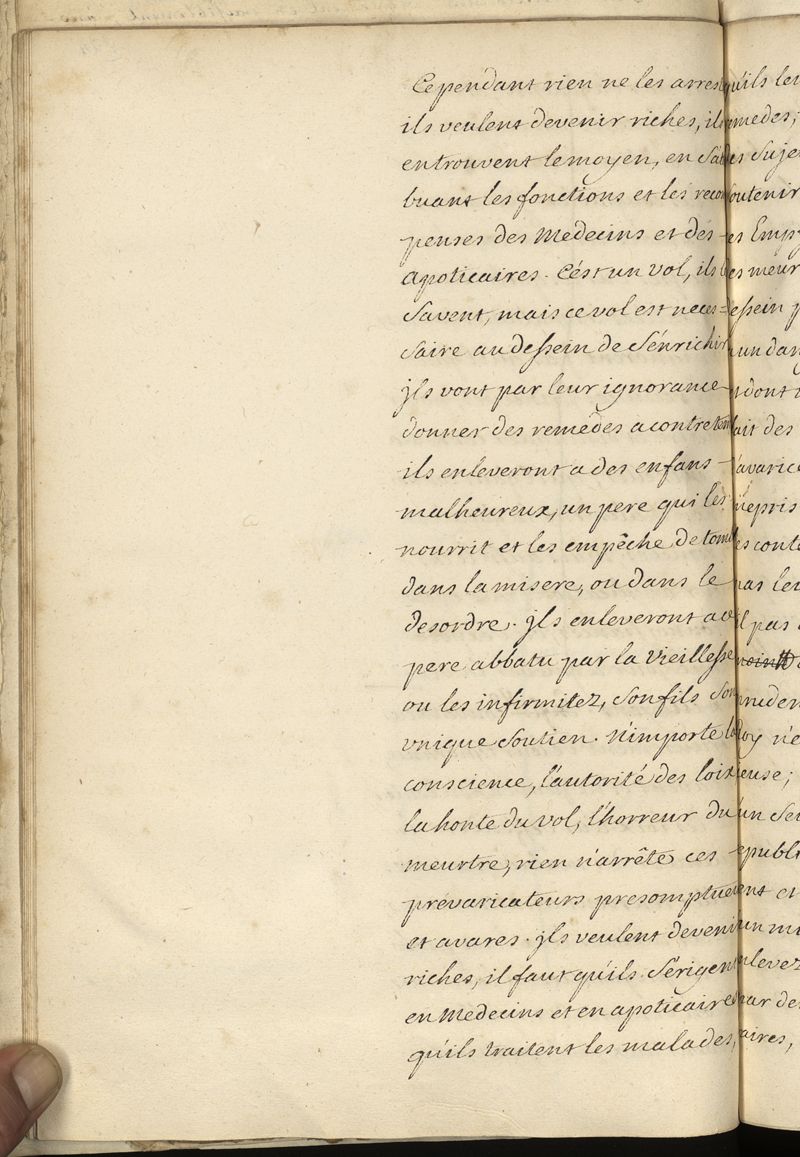 Cependant rien ne les arres
ils veulent devenir riches, ils
entrouvent le moyen, en s'at
buant les fonctions et les recom
penses des Medecins et des
Apoticaires. C'est un vol, ils le
savent, mais ce vol est neces=
saire au dessein de s'énrichir
jls vont par leur ignorance
donner des remedes a contretem
ils enleveront a des enfans
malheureux, un pere qui les
nourrit et les empêche de tom
dans la misere, ou dans le
desordre. jls enleveront a ce
pere abbatu par la vieillesse
ou les infirmitez, son fils son
vnique soutien. N'importe la
conscience, l'autorité des loix
la honte du vol, l'horreur du
meurtre, rien n'arrête ces
prevaricateurs presomptue
et avares. jls veulent deveni
riches, il faut qu'ils s'érigent
en Medecins et en apoticaires
qu'ils traitent les malades,
qu'ils leu
remedes;
es Suje
soutenir
es Emp
es meur
essein p
un dan
dont
ait des
avarice
mepris
es conte
pas leu
il pas
pruden
oy n'e
ieuse;
un Se
epubli
ent et
un mi
nlevez
par de
aires,